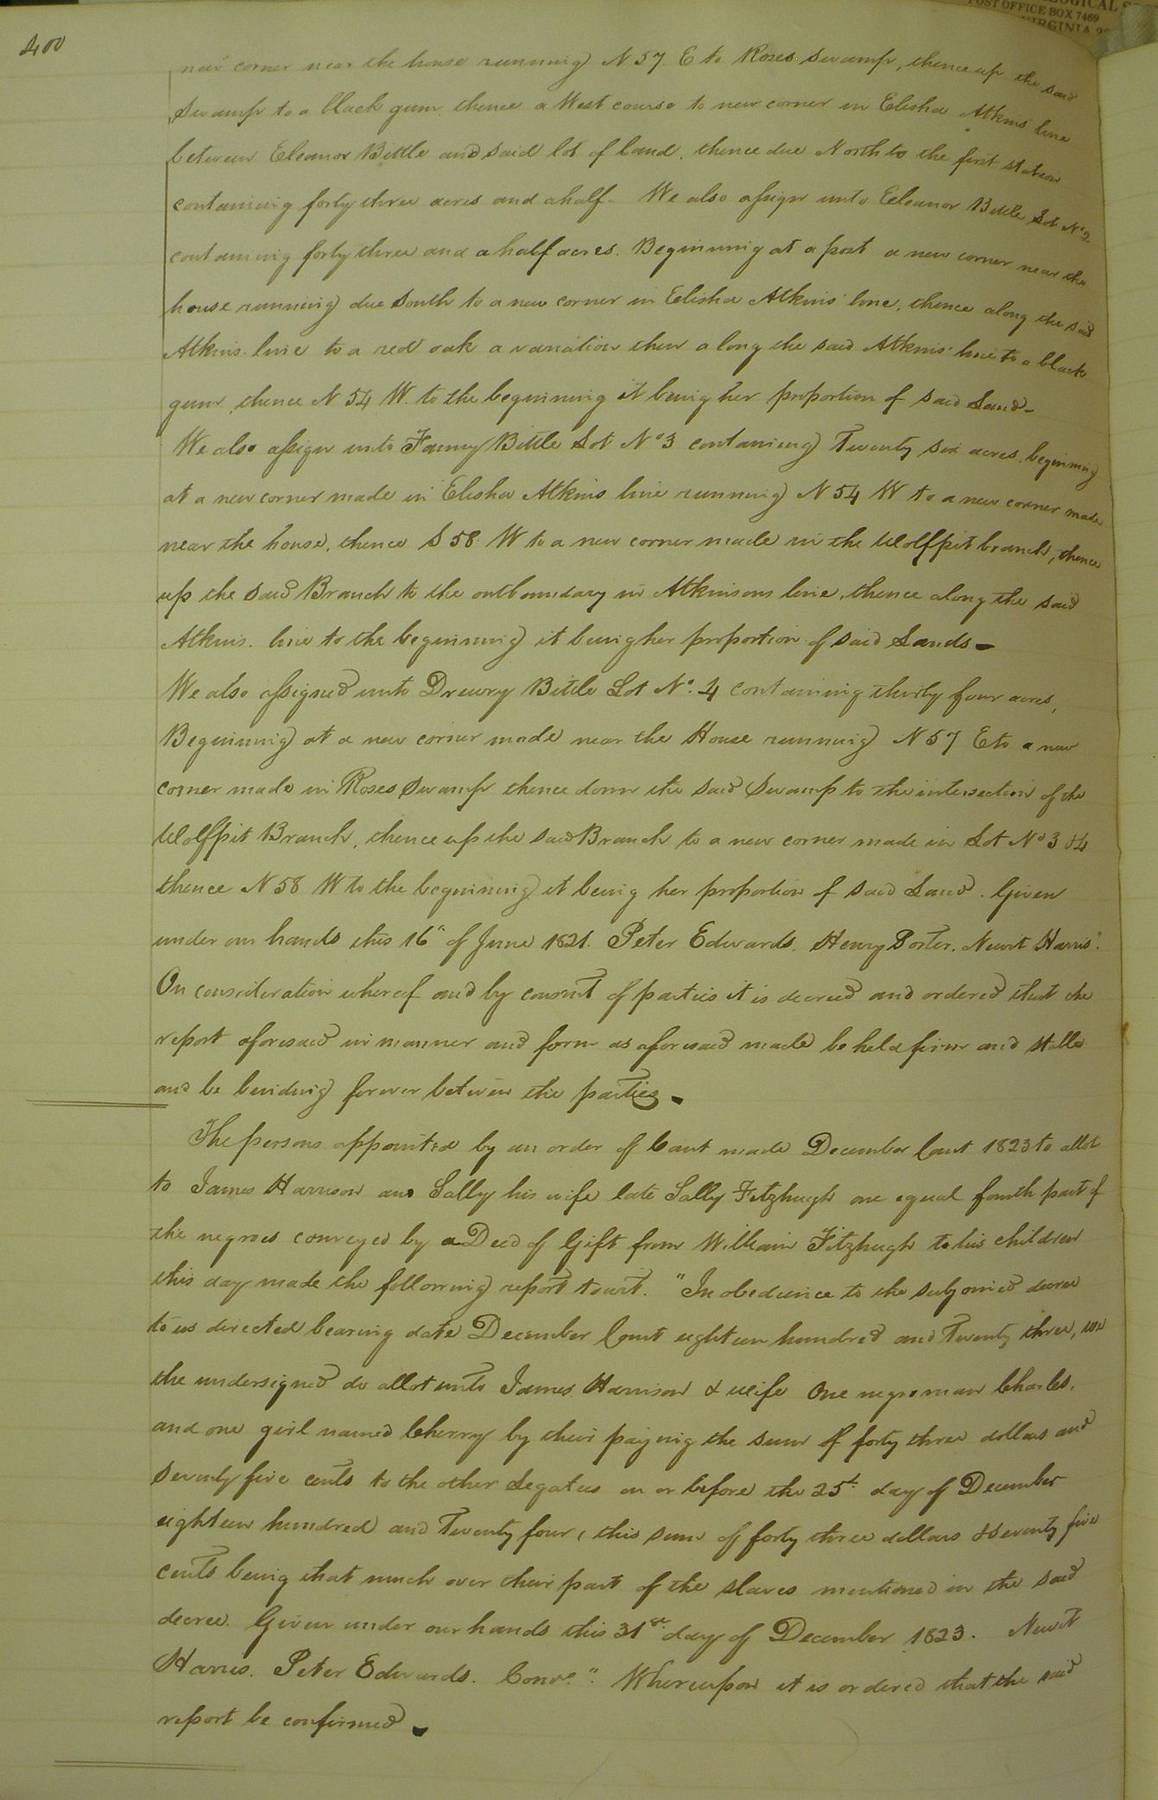 OLOGICAL S
POST OFFICE BOX 7469
VIRGINIA 2
400
new corner near the house running N 57. E to Roses Swamp, thence up the said
Swamp to a black gum thence a West course to new corner in Elisha Atkins line
between Eleanor Bittle and said lot of land, thence due North to the first station
containing forty three acres and a half. We also assign unto Eleanor Bittle Lot No 2
containing forty three and a half acres. Beginning at a post a new corner near the
house running due South to a new corner in Elisha Atkins' line, thence along the said
Atkins line to a red oak a variation then along the said Atkins' line to a black
gum, thence N 54 W. to the beginning it being her proportion of said Land -
We also assign unto Fanny Bittle Lot No 3 containing Twenty six acres beginning
at a new corner made in Elisha Atkins line running N 54 W to a new corner made
near the house, thence S 58. W to a new corner made in the Wolfpit branch, thence
up the said Branch to the outboundary in Atkinsons line, thence along the said
Atkins. line to the beginning it being her proportion of said Lands -
We also assigned unto Drewry Bittle Lot No. 4 containing thirty four acres,
Beginning at a new corner made near the House running N 57 E to a new
corner made in Roses Swamp thence down the said Swamp to the intersection of the
Wolfpit Branch, thence up the said Branch to a new corner made in Lot No 3 & 4
thence N 58 W to the beginning it being her proportion of said Land. Given
under our hands this 16" of June 1821. Peter Edwards. Henry Porter. Newit Harris".
On consideration whereof and by consent of parties it is decreed and ordered that the
report aforesaid in manner and form as aforesaid made be held firm and stable
and be binding forever between the parties -
The persons appointed by an order of Court made December Court 1823 to allot
to James Harrison and Sally his wife late Sally Fitzhugh one equal fourth part of
the negroes conveyed by a Deed of Gift from William Fitzhugh to his children
this day made the following report towit. "In obedience to the subjoined decree
to us directed bearing date December Court eighteen hundred and Twenty three, we
the undersigned do allot unto James Harrison & wife One negro man Charles,
and one girl named Cherry by their paying the sum of forty three dollars and
seventy five cents to the other Legatees on or before the 25t. day of December
eighteen hundred and Twenty four, this sum of forty three dollars & seventy five
cents being that much over their part of the slaves mentioned in the said
decree. Given under our hands this 31st day of December 1823. Newit
Harris. Peter Edwards. Comrs." Whereupon it is ordered that the said
report be confirmed -